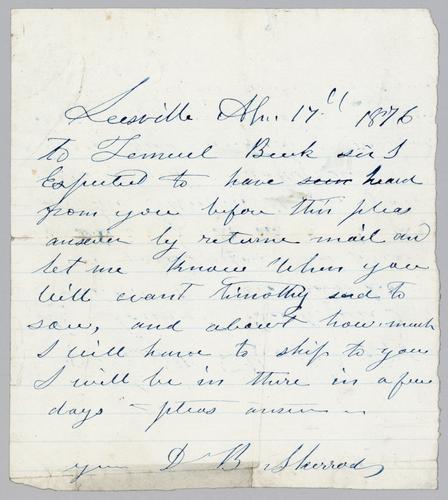 Leesville Ap. 17th 1876
to Lemuel Beck sir I
Expected to have heard
from you before this pleas
answer by returne mail and
let me know when you
Will want timothy sed to
sow, and about how much
I will have to ship to you
I will be in there in a few
days - pleas answer
D B Sherrod